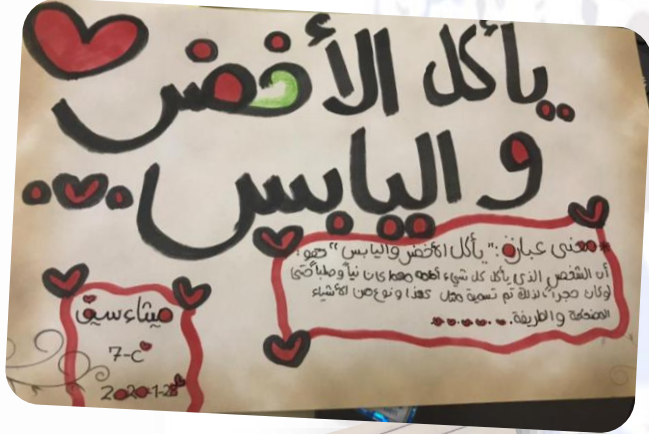 يأكل الأخضر
واليابس...
معنى عبارة: "يأكل الأخضر واليابس" هو:
أن الشخص الذي يأكل كل شيء أمامه مهما كان نيأ وصلبا حتى
لو كان حجرا، لذلك تم تسمية مثل كهذا ونوع من الأشياء
المضحكة والطريفة.....
ميثاء سيف
7-C
2020-1-28